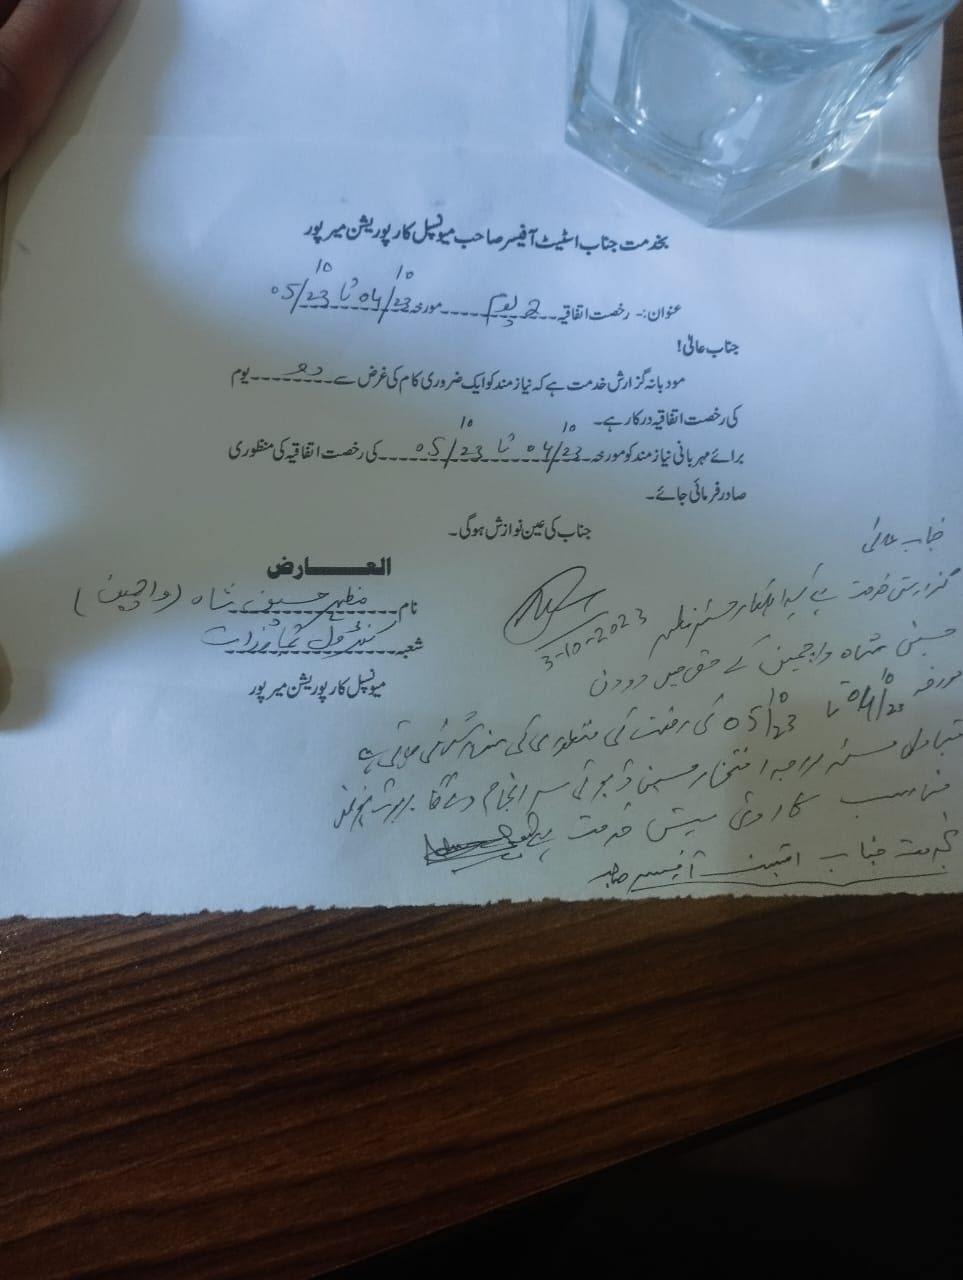 بخدمت جناب اسٹیٹ آفیسر صاحب میونسپل کارپوریشن میرپور
عنوان:- رخصت اتفاقیہ 2 یوم مورخہ 04/10/23 تا 05/10/23
جناب عالی!
مودبانہ گزارش خدمت ہے کہ نیازمند کو ایک ضروری کام کی غرض سے دو یوم
کی رخصت اتفاقیہ درکار ہے۔
برائے مہربانی نیازمند کو مورخہ 04/10/23 تا 05/10/23 کی رخصت اتفاقیہ کی منظوری
صادر فرمائی جائے۔
جناب کی عین نوازش ہوگی۔
العارض
نام مظہر حسین شاہ (واچمین)
شعبہ کنٹرول تجاوزات
میونسپل کارپوریشن میرپور
3-10-2023
جناب عالی
گزارش خدمت ہے کہ اہلکار مظہر
حسین شاہ واچمین کے حق میں دو دن
مورخہ 04/10/23 تا
05/10/23 کی رخصت کی منظوری کی سفارش کی جاتی ہے
متبادل افتخار حسین ڈیوٹی سرانجام دے گا
مناسب کاروائی پیش خدمت ہے
بخدمت جناب اسٹیٹ آفیسر صاحب